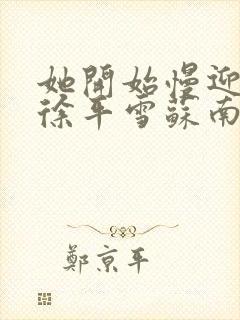 她開始慢迎
徐平雪蘇南
鄭京平